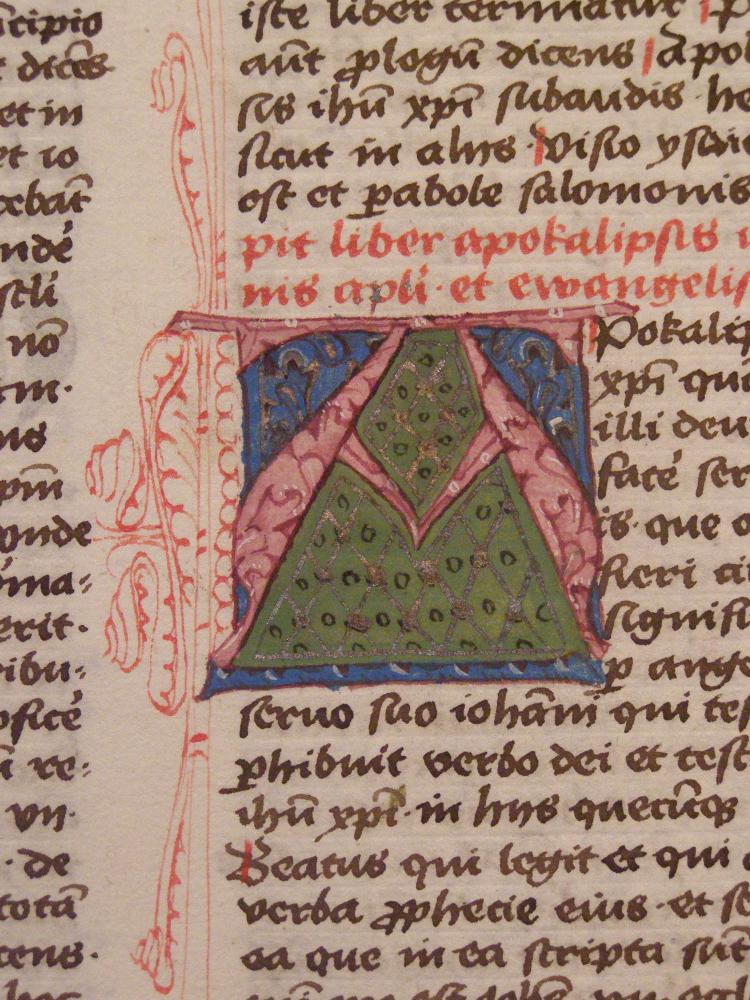 ncipio
t dicēs
et in
et io
cebat̄
nde
scli
nō
tm·
us
pm̄
onde
ima-
erit·
ribu-
ofice
re-
vii·
· de
totā
cens·
iste liber terminatur
aūt ꝓlogū dicens Apo
sis ihū xpī subaudis he
sicut in aliis visio ysai
est et ꝑabole salomonis
pit liber apokalipsis
nis apli· et ewangelis
Apokalip
xpī qu
illi deu
face ser
is· que o
fieri ci
signifi
ꝑ ange
seruo suo iohāni qui tes
phibuit verbo dei et test
ihū xpī· in hiis quecūqꝫ
Beatus qui legit et qui
verba ꝓphecie eius· et se
ea que in ea scripta sūt